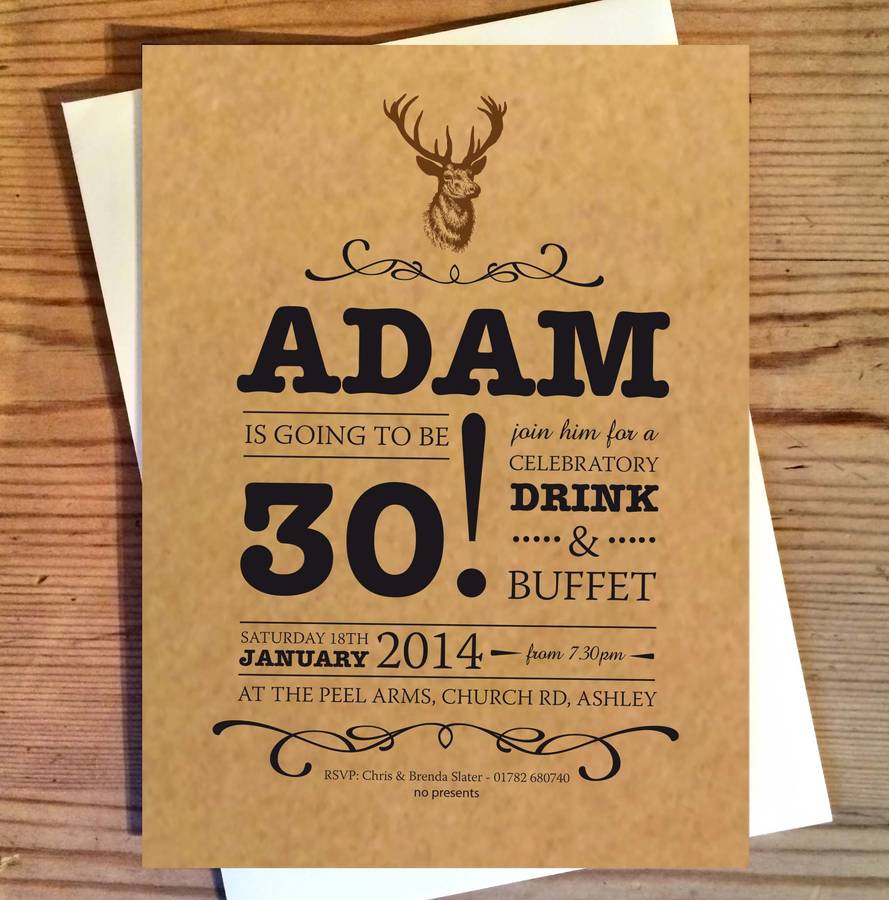 ADAM
IS GOING TO BE
30!
join him for a
CELEBRATORY
DRINK
&
BUFFET
SATURDAY 18TH
JANUARY 2014 from 7.30pm
AT THE PEEL ARMS, CHURCH RD, ASHLEY
RSVP: Chris & Brenda Slater - 01782 680740
no presents